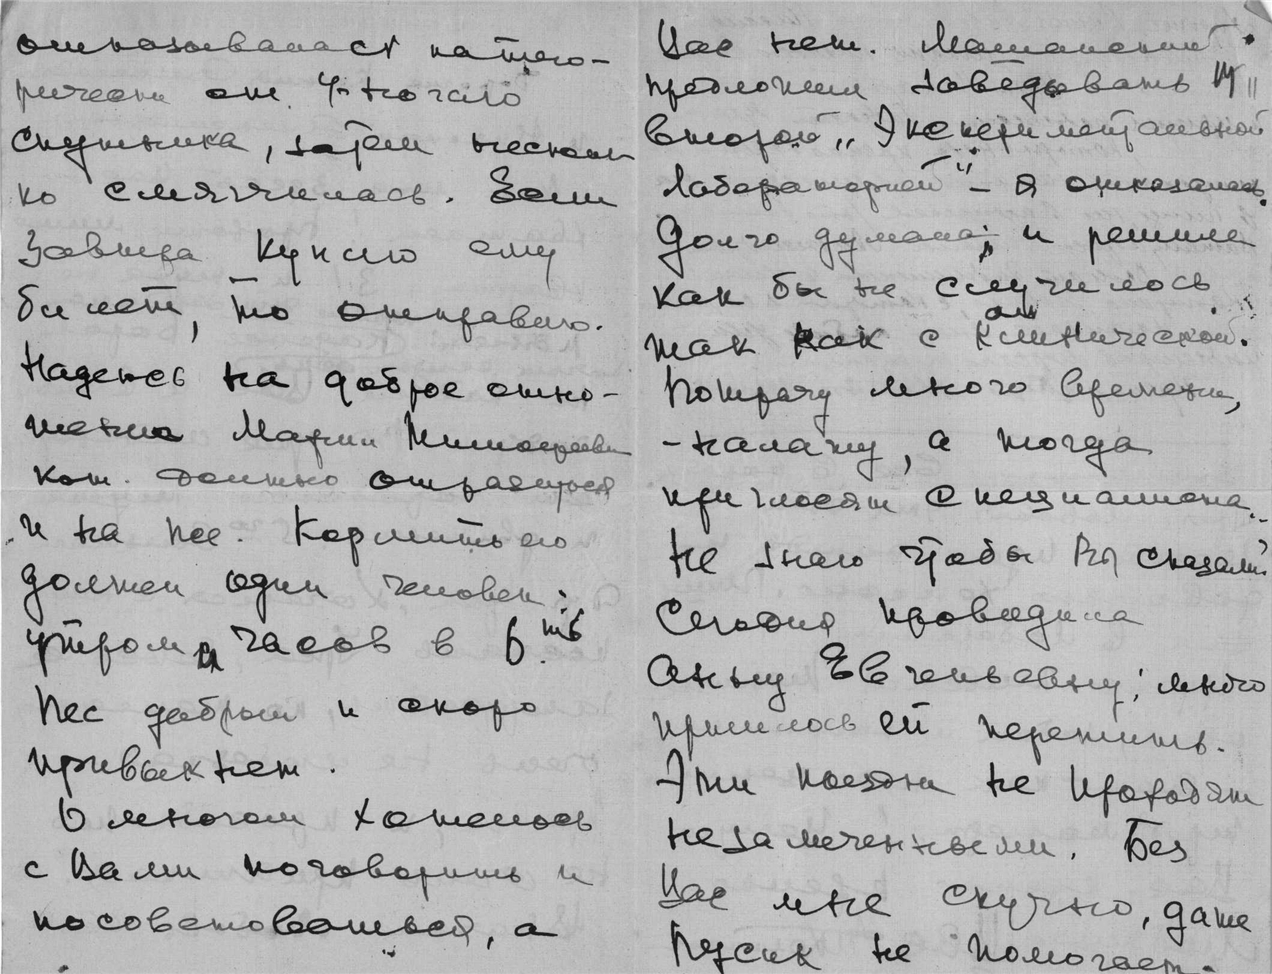 отказывалась катего-
рически от 4-ногого
спутника, затем несколь
ко смягчилась. Если
завтра куплю ему
билет, то отправлю.
Надеюсь на доброе отно-
шение Марии
кот. должно отразиться
и на псе. Кормить его
должен один человек:
утром и часов в 6ть
Пес добрый и скоро
привыкнет.
О многом хотелось
с Вами поговорить и
посоветоваться, а
Вас нет.
предложил заведывать
второй „Экспериментальной
Лабораторией" – я отказалась.
Долго думала; и решила
как бы не случилось
так как с Клинической.
Потрачу много времени,
– налажу, а тогда
пригласят специалиста.
Не знаю чтобы Вы сказали?
Сегодня проводила
Анну Евгеньевну; много
пришлось ей пережить.
Эти поездки не проходят
незамеченными. Без
Вас мне скучно, даже
Пусик не помогает.